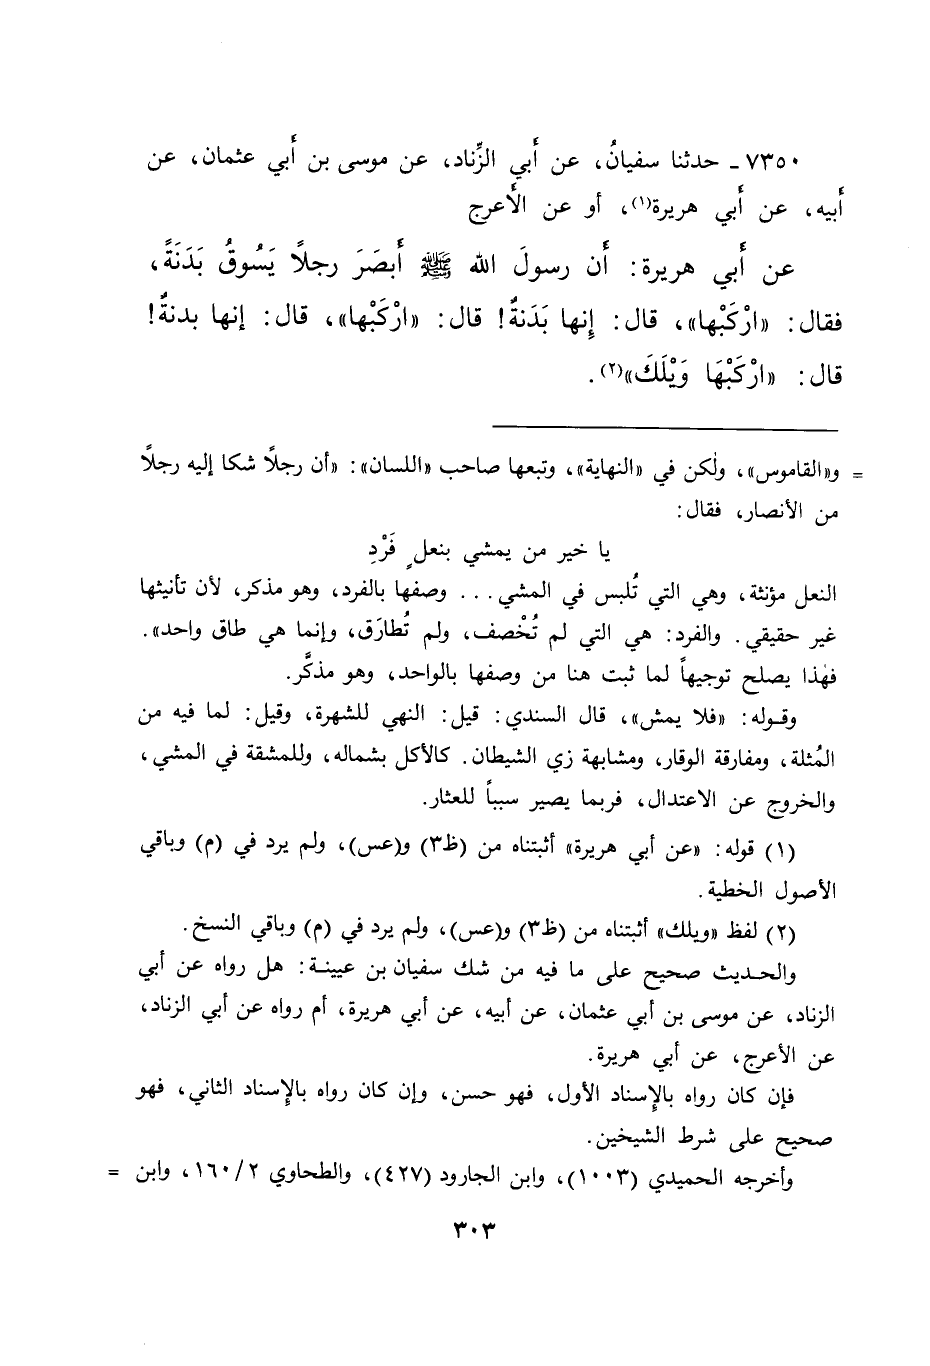 ٧٣٥٠ - حدثنا سفيانُ، عن أَبي الزِّناد، عن موسى بن أَبي عثمان، عن
أَبيه، عن أَبي هريرة(١)، أو عن الأَعرج
عن أَبي هريرة: أَن رسولَ الله ﷺ أَبصَرَ رجلاً يَسُوقُ بَدَنَةً،
فقال: «ارْكَبْها»، قال: إِنها بَدَنةٌ! قال: «ارْكَبْها»، قال: إنها بدنةٌ!
قال: «ارْكَبْهَا وَيْلَكَ»(٢).
= و«القاموس»، ولٰكن في «النهاية»، وتبعها صاحب «اللسان»: «أن رجلاً شكا إليه رجلاً
من الأنصار، فقال:
يا خير من يمشي بنعلٍ فَرْدِ
النعل مؤنثة، وهي التي تُلبس في المشي... وصفها بالفرد، وهو مذكر، لأن تأنيثها
غير حقيقي. والفرد: هي التي لم تُخْصف، ولم تُطارَق، وإنما هي طاق واحد».
فهٰذا يصلح توجيهاً لما ثبت هنا من وصفها بالواحد، وهو مذكَّر.
وقوله: «فلا يمش»، قال السندي: قيل: النهي للشهرة، وقيل: لما فيه من
المُثلة، ومفارقة الوقار، ومشابهة زي الشيطان. كالأكل بشماله، وللمشقة في المشي،
والخروج عن الاعتدال، فربما يصير سبباً للعثار.
(١) قوله: «عن أبي هريرة» أثبتناه من (ظ٣) و(عس)، ولم يرد في (م) وباقي
الأصول الخطية.
(٢) لفظ «ويلك» أثبتناه من (ظ٣) و(عس)، ولم يرد في (م) وباقي النسخ.
والحديث صحيح على ما فيه من شك سفيان بن عيينة: هل رواه عن أبي
الزناد، عن موسى بن أبي عثمان، عن أبيه، عن أبي هريرة، أم رواه عن أبي الزناد،
عن الأعرج، عن أبي هريرة.
فإن كان رواه بالإسناد الأول، فهو حسن، وإن كان رواه بالإسناد الثاني، فهو
صحيح على شرط الشيخين.
وأخرجه الحميدي (١٠٠٣)، وابن الجارود (٤٢٧)، والطحاوي ١٦٠/٢، وابن =
٣٠٣